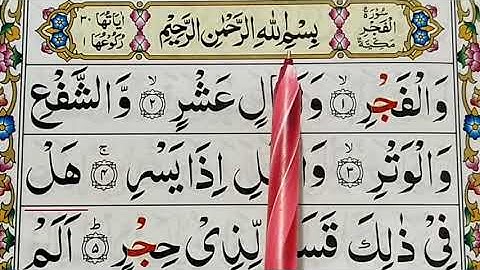 سُوْرَةُ الْفَجْرِ مَكِّيَّةٌ
بِسْمِ اللّٰهِ الرَّحْمٰنِ الرَّحِيْمِ
اٰيَاتُهَا ٣٠
رُكُوْعُهَا ١
وَالْفَجْرِ ۙ﴿١﴾ عَشْرٍ ۙ﴿٢﴾ وَّالشَّفْعِ
وَالْوَتْرِ ۙ﴿٣﴾ اِذَا يَسْرِ ۚ﴿٤﴾ هَلْ
فِيْ ذٰلِكَ لِّذِيْ حِجْرٍ ؕ﴿٥﴾ اَلَمْ